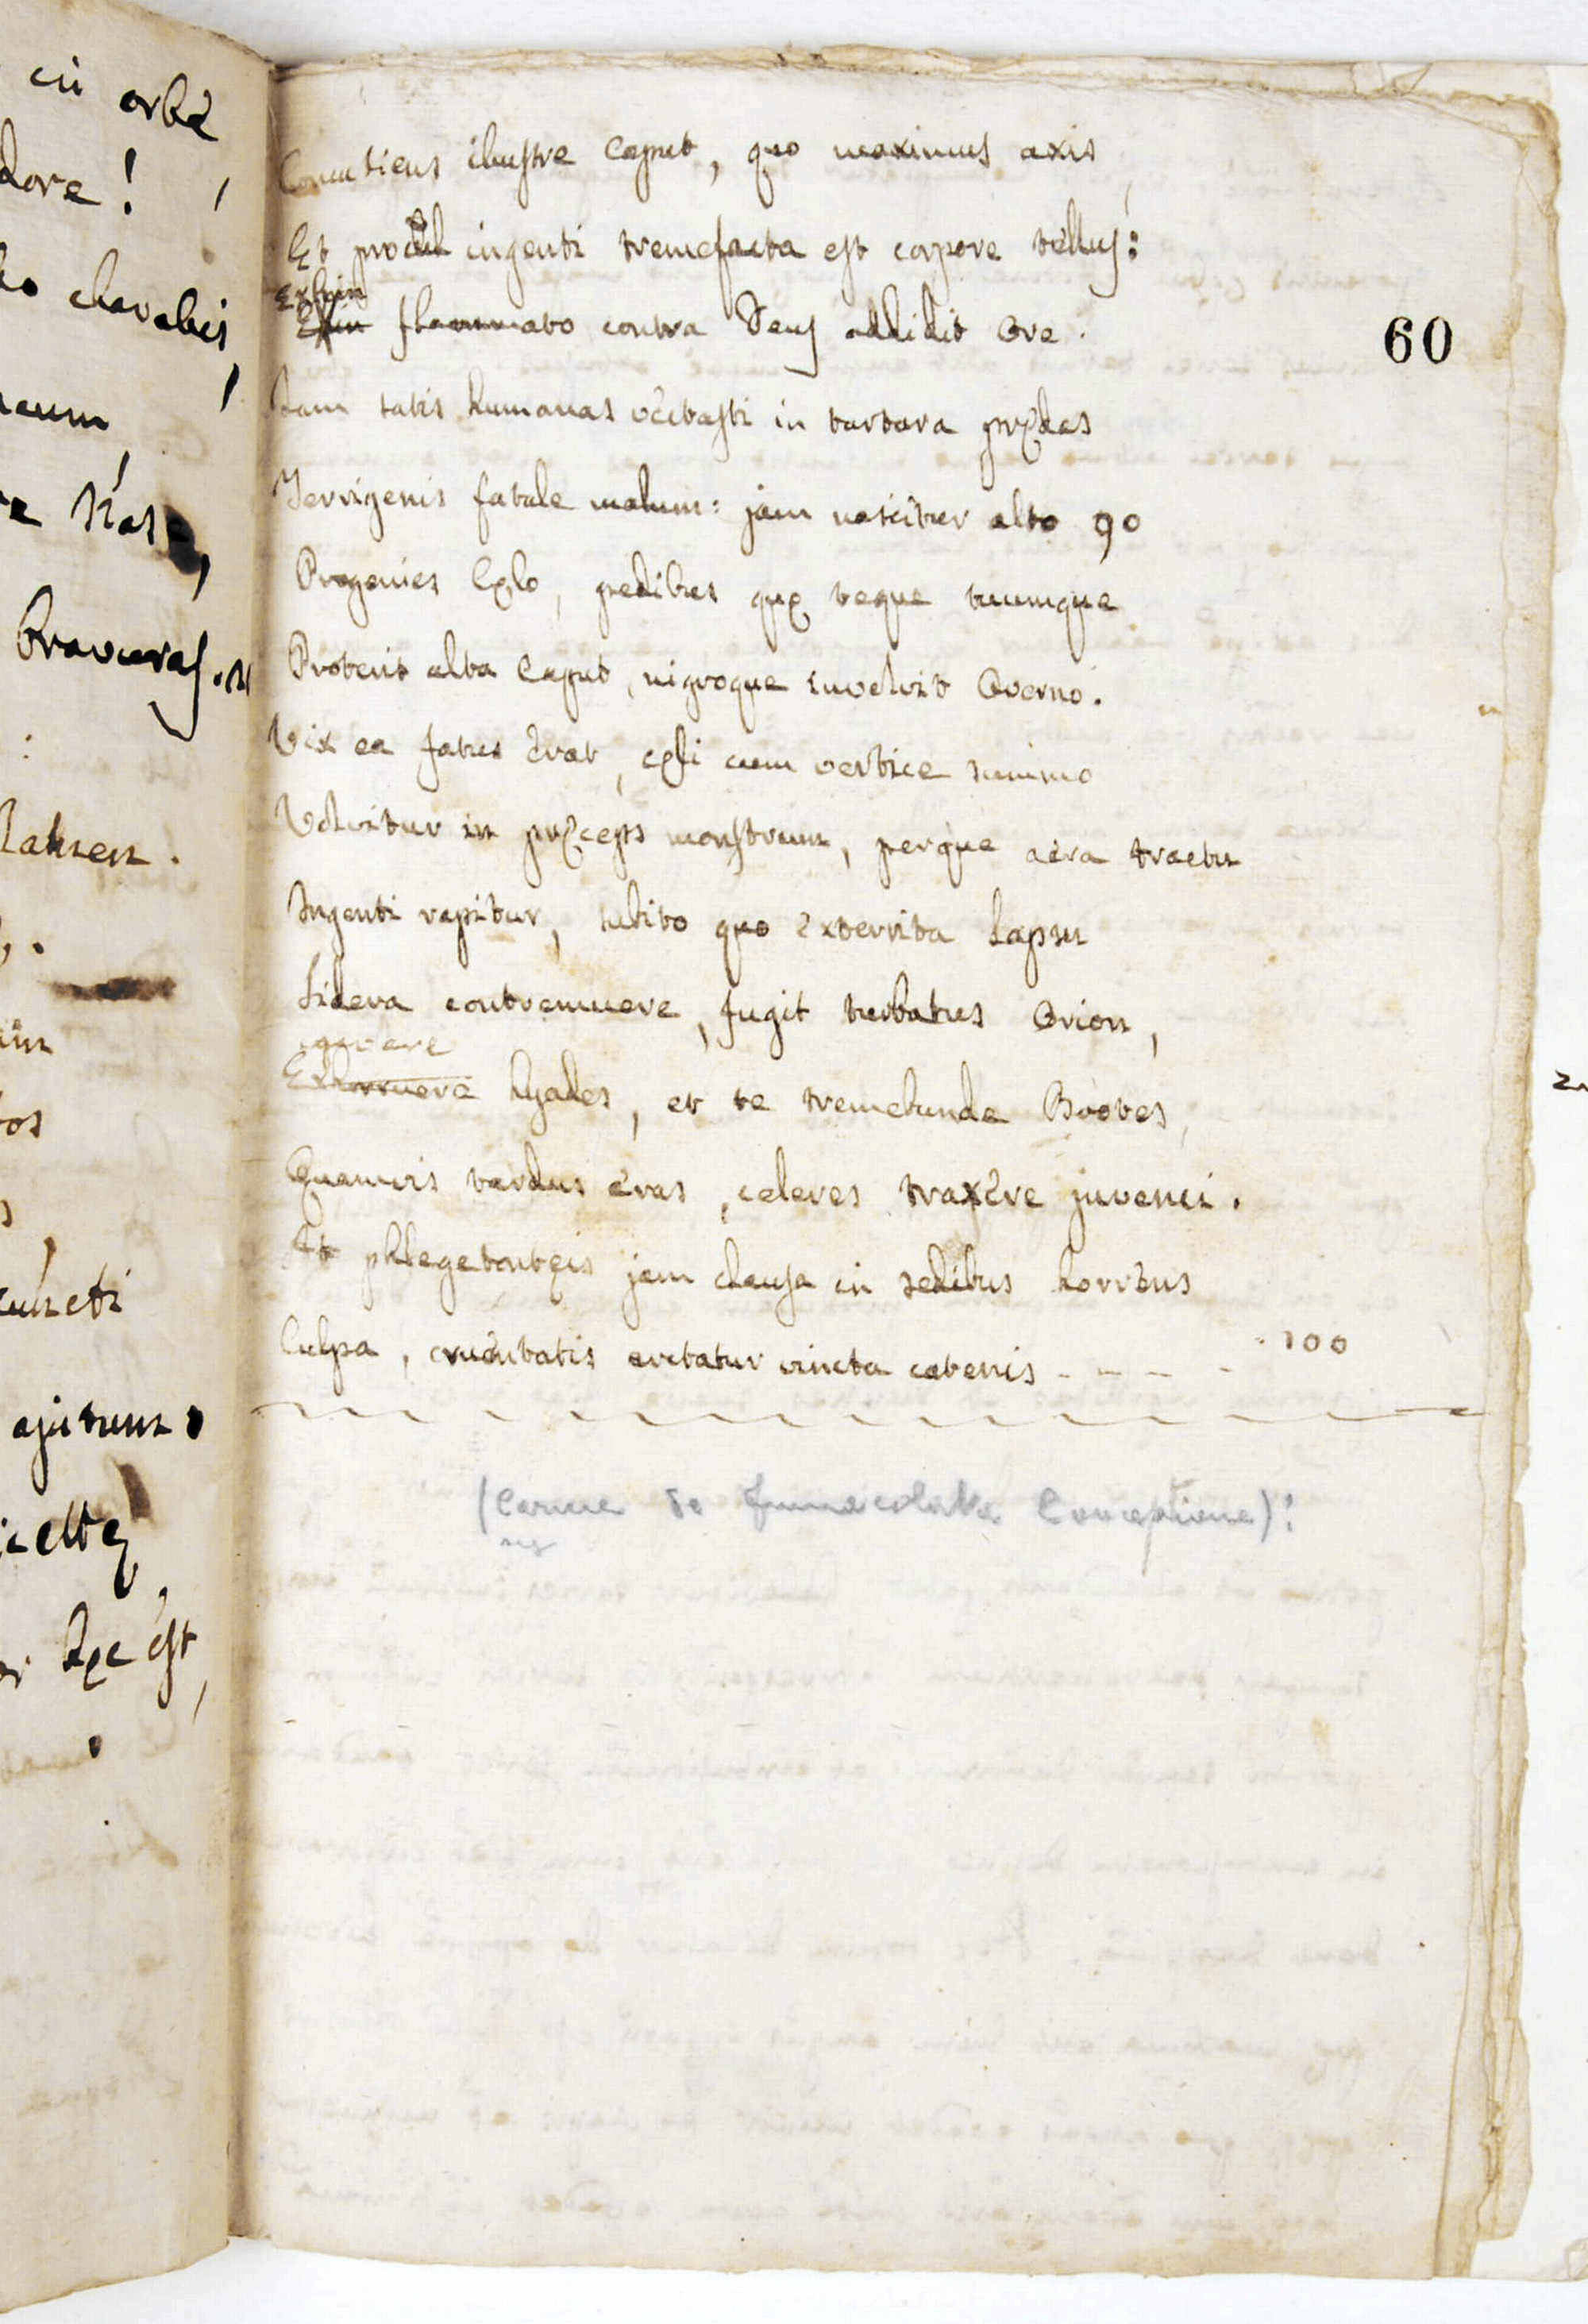 in orbē
dore!
clavabis,
Nase,
Latuen.
cuncti
hęc est,
Concutiens ilustre Caput, quo maximus axis
Et procul ingenti tremefacta est corpore tellus:
Exhin
flammato contra Deus addidit Ore.
Jam satis humanas vectasti in tartara prędas
Terrigenis fatale malum: jam nascitur alto 90
Progenies Cęlo, pedibus quę teque tuumque
Proterit alta Caput, nigroque involvit Averno.
Vix ea fatus erat, cęli cum vertice summo
Volvitur in pręceps monstrum, perque aëra tractu
Ingenti rapitur, subito quo exterrita lapsu
Sidera contremuere, fugit turbatus Orion,
Exhorruere hyades, et te tremebunde Bootes,
Quamvis tardus eras, celeres traxêre juvenci.
At phlegetontęis jam clausa in sedibus horrens
Culpa, cruentatis arctatur vincta catenis - - - - 100
(Carme de Immacolata Conceptione):
60